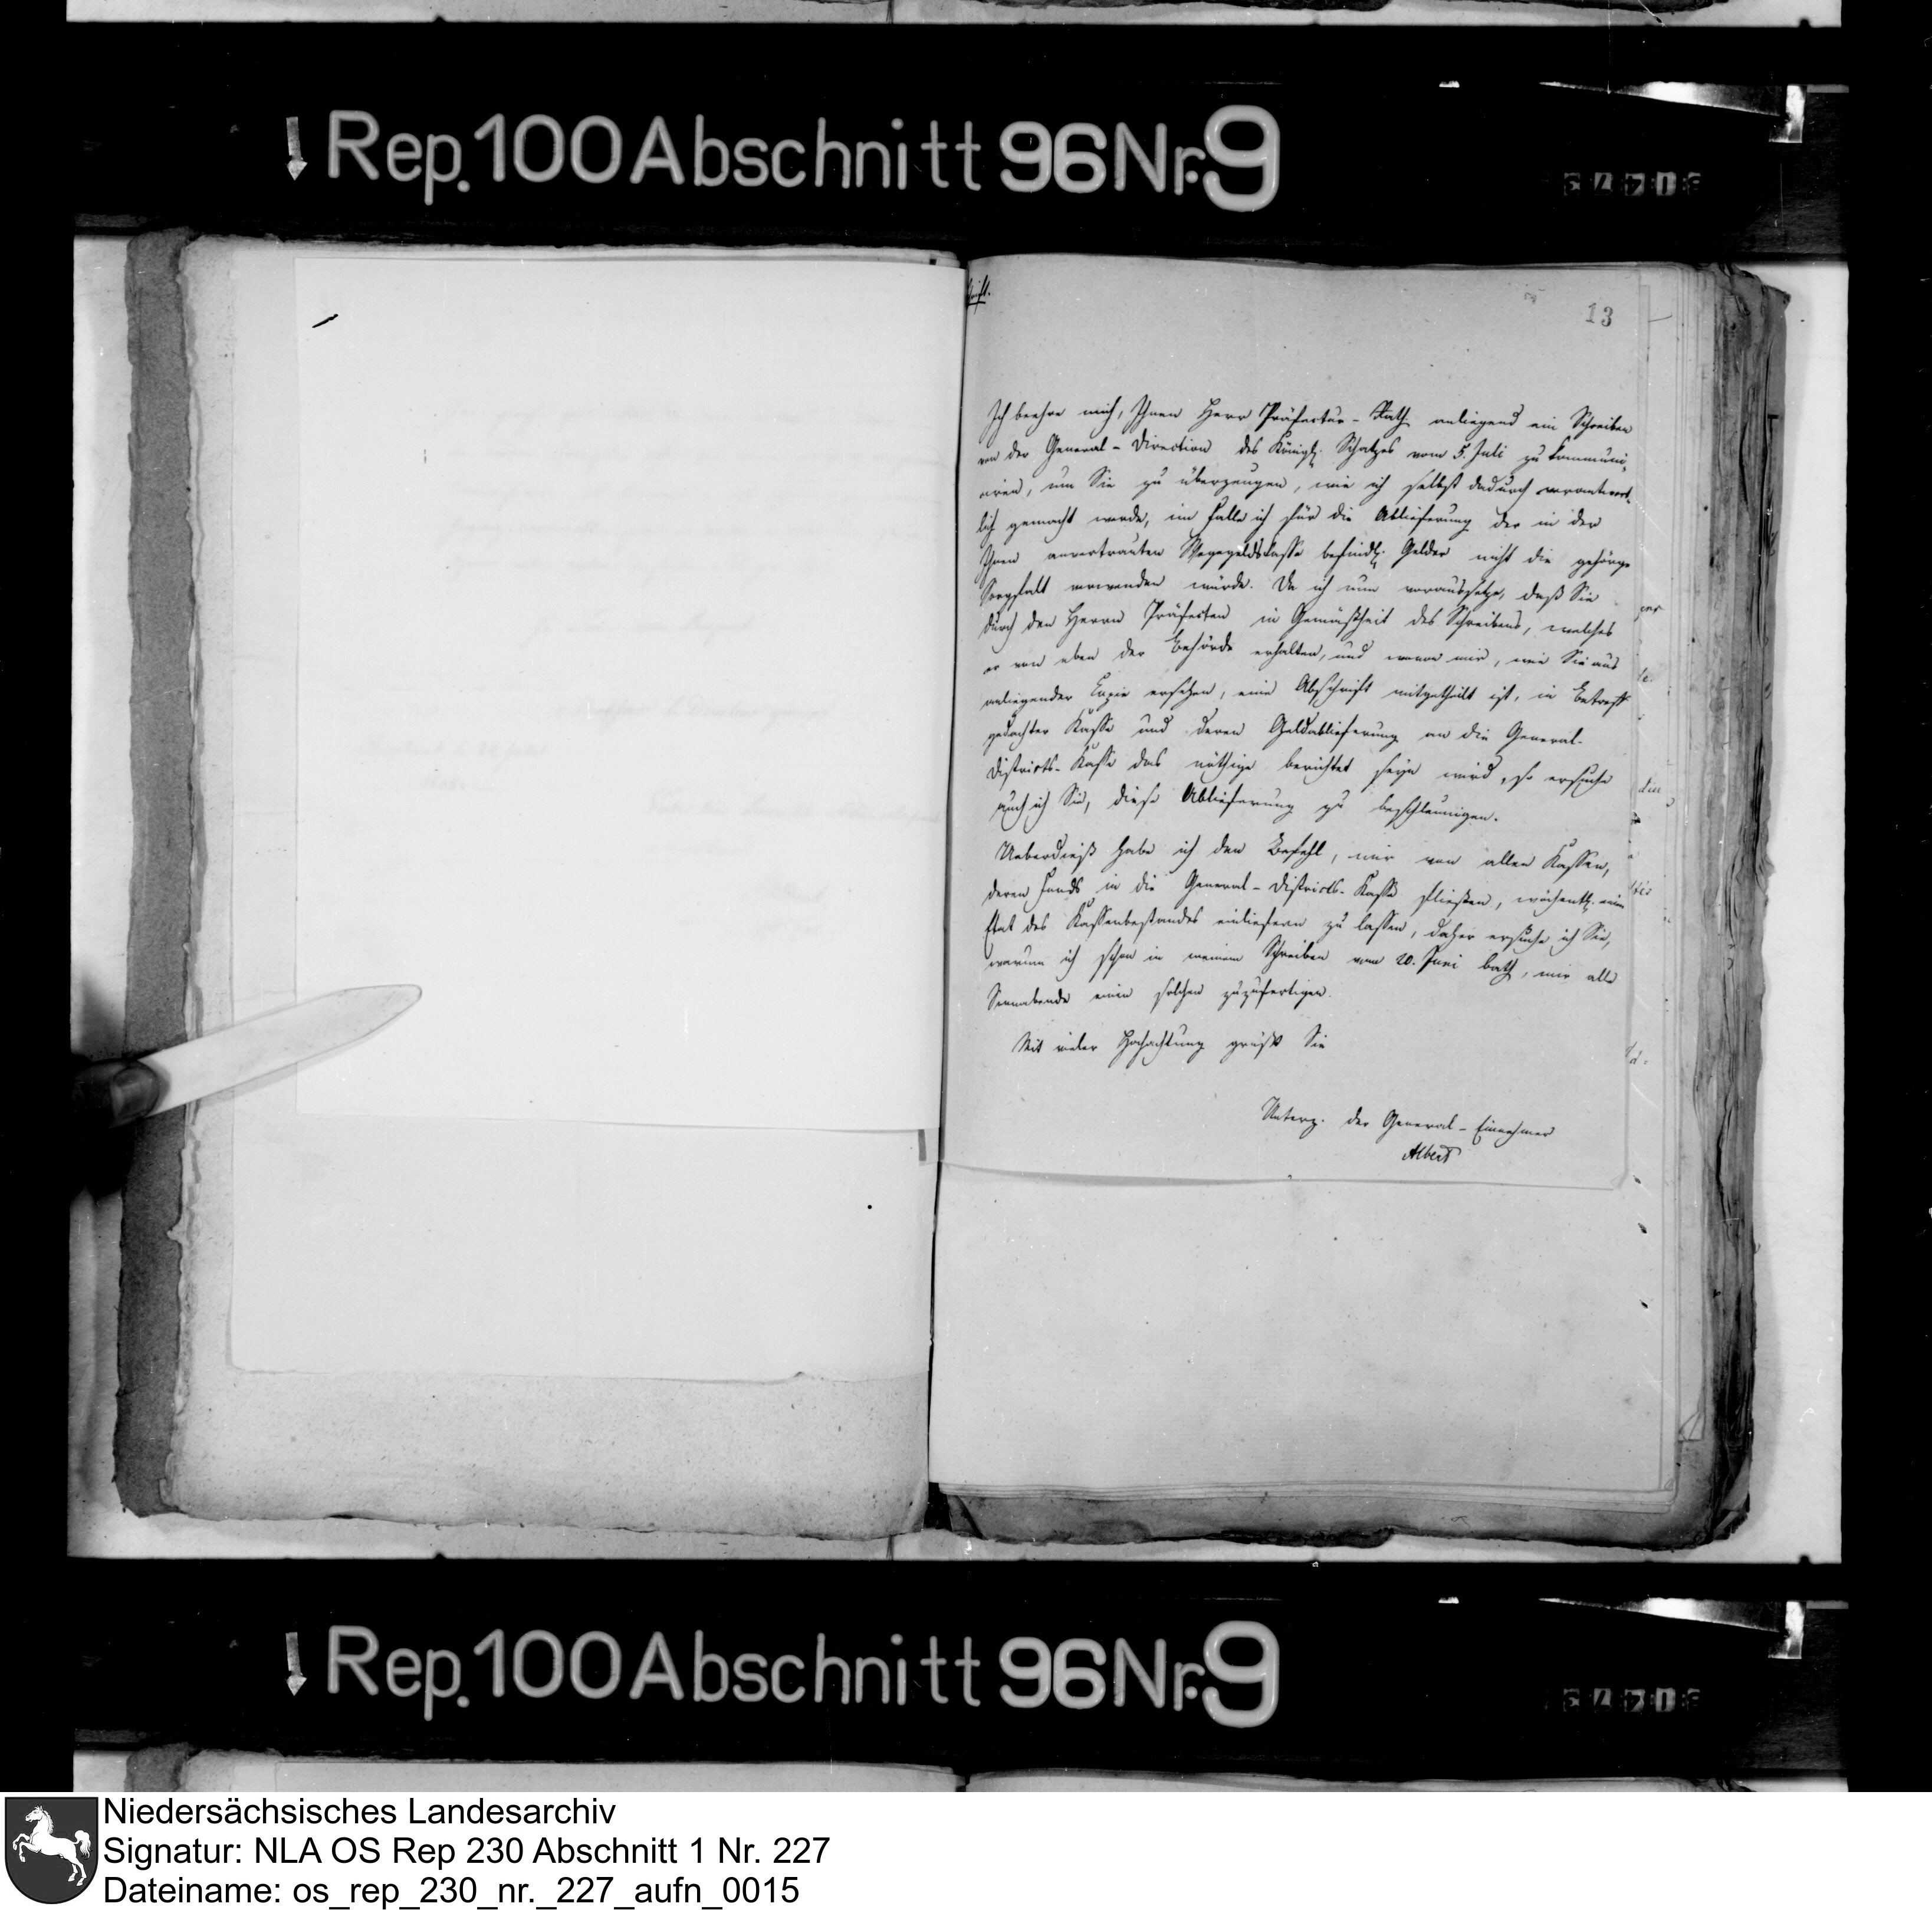 Rep. 100 Abschnitt 96 Nr. 9
13
Ich beehre mich, Ihnen Herr Präfectur-Rath anliegend ein Schreiben
von der General-Direction des Königl. Schatzes vom 5. Juli zu kommuni¬
ciren, um Sie zu überzeugen, wie ich selbst dadurch verantwort¬
lich gemacht werde, im Falle ich für die Ablieferung der in der
Ihnen anvertrauten Wegegeldskasse befindl. Gelder nicht die gehörige
Sorgfalt verwenden würde. Da ich nun voraussetze, daß Sie
durch den Herrn Präfecten in Gemäßheit des Schreibens, welches
er von eben der Behörde erhalten, und wovon mir, wie Sie aus
anliegender Copie ersehen, eine Abschrift mitgetheilt ist, in Betreff
gedachter Kasse und deren Geldablieferung an die General-
Districts-Kasse das nöthige berichtet seyn wird, so ersuche
auch ich Sie, diese Ablieferung zu beschleunigen.
Ueberdieß habe ich den Befehl, mir von allen Kassen,
deren Fonds in die General-Districts-Kasse fließen, wöchentl. einen
Etat des Kassenbestandes einliefern zu lassen, daher ersuche ich Sie,
warum ich schon in meinem Schreiben vom 20. Juni bath, mir alle
Sonnabende einen solchen zuzufertigen.
Mit vieler Hochachtung grüßt Sie
Unterz. der General-Einnehmer
Albert
Rep. 100 Abschnitt 96 Nr. 9
Niedersächsisches Landesarchiv
Signatur: NLA OS Rep 230 Abschnitt 1 Nr. 227
Dateiname: os_rep_230_nr._227_aufn_0015